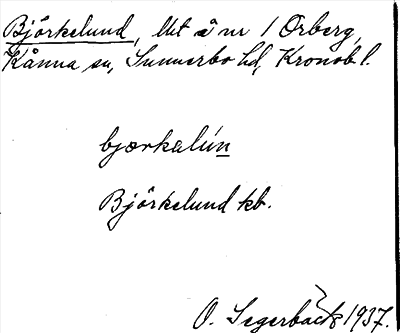 Björkelund, lht å nr 1 Örberg,
Kånna sn, Sunnerbo hd, Kronob. l.
bjœrkalún
Björkelund kb.
O. Segerbäck 1937.